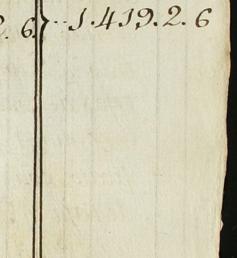 2. 6. 1.419.2.6